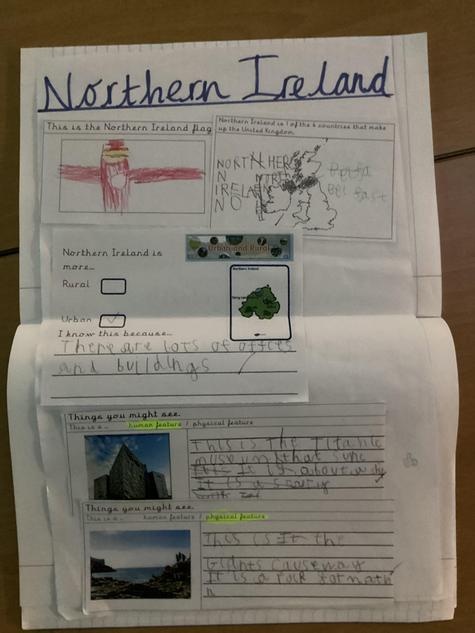 Northern Ireland
This is the Northern Ireland flag
Northern Ireland is 1 of the 4 countries that make
up the United Kingdom.
NORTHER
N
IRELAN
Bel fast
Urban and Rural
Northern Ireland is
more...
Northern Ireland
Rural
Urban
I know this because...
There are lots of offices
and buildings
Things you might see.
This is a... human feature / physical feature
This is the Titanic
museum that
It is about a
It is a
Things you might see.
This is a... human feature / physical feature
This is It the
Giants causeway
It is a rock formath
n